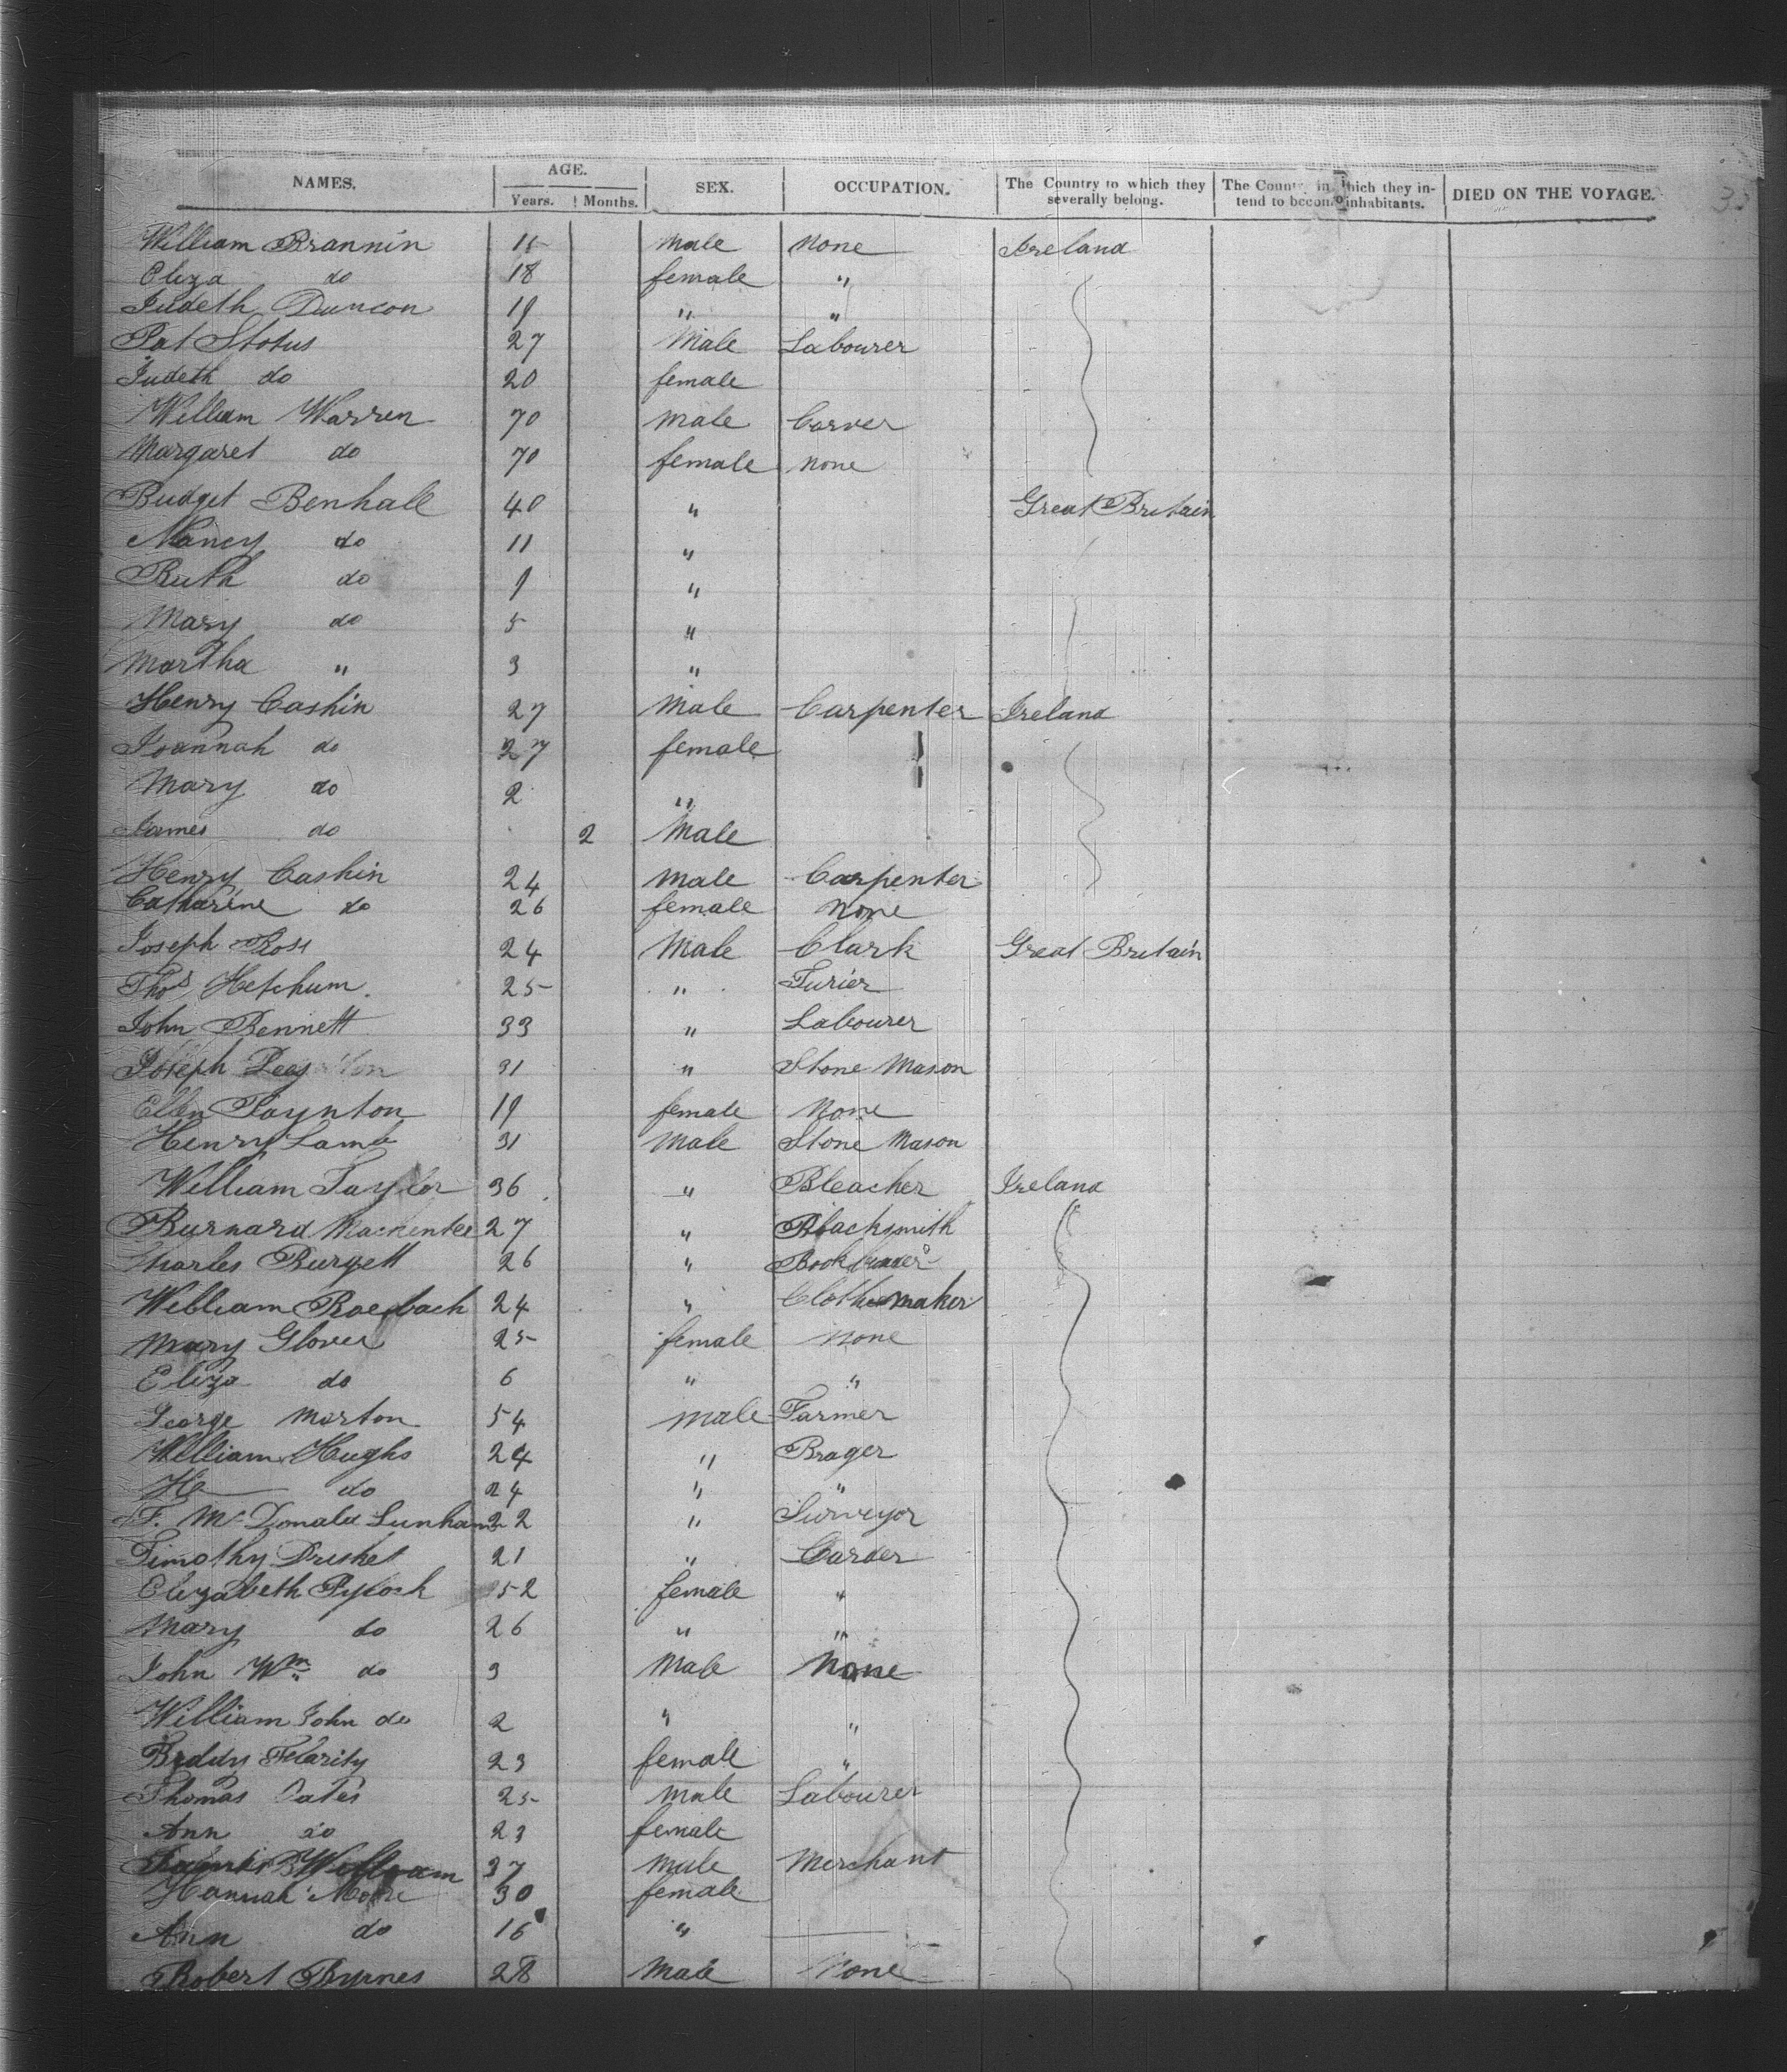 NAMES. AGE. SEX. OCCUPATION. The Country to which they severally belong. The Country in which they intend to become inhabitants. DIED ON THE VOYAGE.
Years. Months.
William Brannin 15 Male None Ireland
Eliza do 18 female "
Judeth Duncon 19 " "
Pat Stotus 27 Male Labourer
Judeth do 20 female
William Warren 70 Male Carver
Margaret do 70 female none
Budget Benhall 40 " Great Britain
Nancy do 11 "
Ruth do 9 "
Mary do 5 "
Martha " 3 "
Henry Cashin 27 Male Carpenter Ireland
Joannah do 27 female
Mary do 2 "
James do 2 Male
Henry Cashin 24 Male Carpenter
Catharine do 26 female None
Joseph Ross 24 Male Clark Great Britain
Thos Hetchum 25 " Furier
John Bennett 33 " Labourer
Joseph 31 " Stone Mason
Ellen Paynton 19 female None
Henry Lamb 31 Male Stone Mason
William Taylor 36 " Bleacher Ireland
Burnard Mackentee 27 " Blacksmith
Charles Burgett 26 " Book binder
William Roebach 24 " Clothmaker
Mary Glover 25 female None
Eliza do 6 " "
George Morton 54 male Farmer
William Hughs 24 " Brager
He do 24 " "
F. Mc Donald Lunham 22 " Surveyor
Timothy Drisket 21 " Carder
Elizabeth Pycock 52 female "
Mary do 26 " "
John Wm do 3 Male None
William John do 2 " "
Biddy Flarity 23 female "
Thomas Oates 25 male Labourer
Ann do 23 female
William 37 Male Merchant
Hannah Moore 30 female
Ann do 16 "
Robert Byrnes 28 Male None